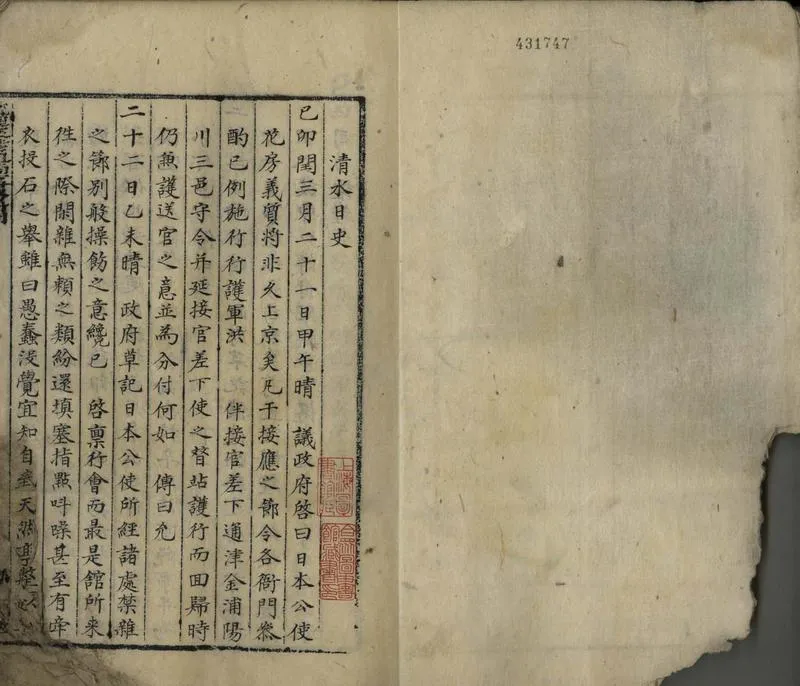 431747
清水日史
己卯閏三月二十一日甲午晴 議政府啓曰日本公使
花房義質將非久上京矣凡干接應之節令各衙門叅
酌已例施行行護軍洪 伴接官差下通津金浦陽
川三邑守令并延接官差下使之替站護行而回歸時
仍兼護送官之意並爲分付何如 傳曰允
二十二日乙未晴 政府草記日本公使所經諸處禁雜
之節別般操飭之意纔已 啓禀行會而最是館所來
徃之際閑雜無賴之類紛還填塞指點呌噪甚至有牽
衣投石之擧雖曰愚蠢沒覺宜知自
天然亭